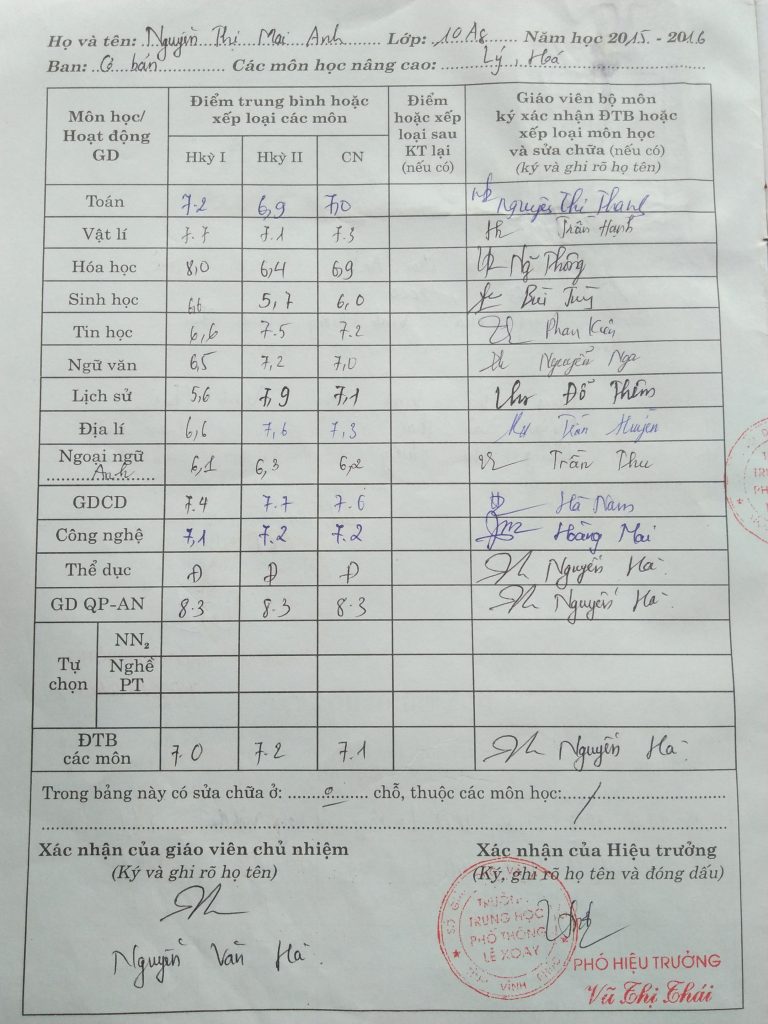 Họ và tên: Nguyễn Thị Mai Anh Lớp: 10A8 Năm học 2015 - 2016
Ban: Cơ bản Các môn học nâng cao: Lý, Hoá
Môn học/ Hoạt động GD
Điểm trung bình hoặc xếp loại các môn
Hkỳ I Hkỳ II CN
Điểm hoặc xếp loại sau KT lại (nếu có)
Giáo viên bộ môn ký xác nhận ĐTB hoặc xếp loại môn học và sửa chữa (nếu có) (ký và ghi rõ họ tên)
Toán 7.2 6,9 7,0 Nguyễn Thị Thanh
Vật lí 7.7 7.1 7.3 Trần Hạnh
Hóa học 8,0 6,4 6,9 Ng Phông
Sinh học 6,6 5,7 6,0 Bùi
Tin học 6,6 7.5 7.2 Phan Kiên
Ngữ văn 6,5 7,2 7,0 Nguyễn Nga
Lịch sử 5,6 7,9 7,1 Đỗ Thêm
Địa lí 6,6 7,6 7,3 Trần Huyền
Ngoại ngữ Anh 6,1 6,3 6,2 Trần Thu
GDCD 7.4 7.7 7.6 Hà Nam
Công nghệ 7,1 7.2 7.2 Hoàng Mai
Thể dục Đ Đ Đ Nguyễn Hà
GD QP-AN 8.3 8.3 8.3 Nguyễn Hà
Tự chọn
NN₂
Nghề PT
ĐTB các môn 7.0 7.2 7.1 Nguyễn Hà
Trong bảng này có sửa chữa ở: 0 chỗ, thuộc các môn học: /
Xác nhận của giáo viên chủ nhiệm
(Ký và ghi rõ họ tên)
Nguyễn Văn Hà
Xác nhận của Hiệu trưởng
(Ký, ghi rõ họ tên và đóng dấu)
TRƯỜNG
TRUNG HỌC
PHỔ THÔNG
LÊ XOAY
VĨNH PHÚC
PHÓ HIỆU TRƯỞNG
Vũ Thị Thái